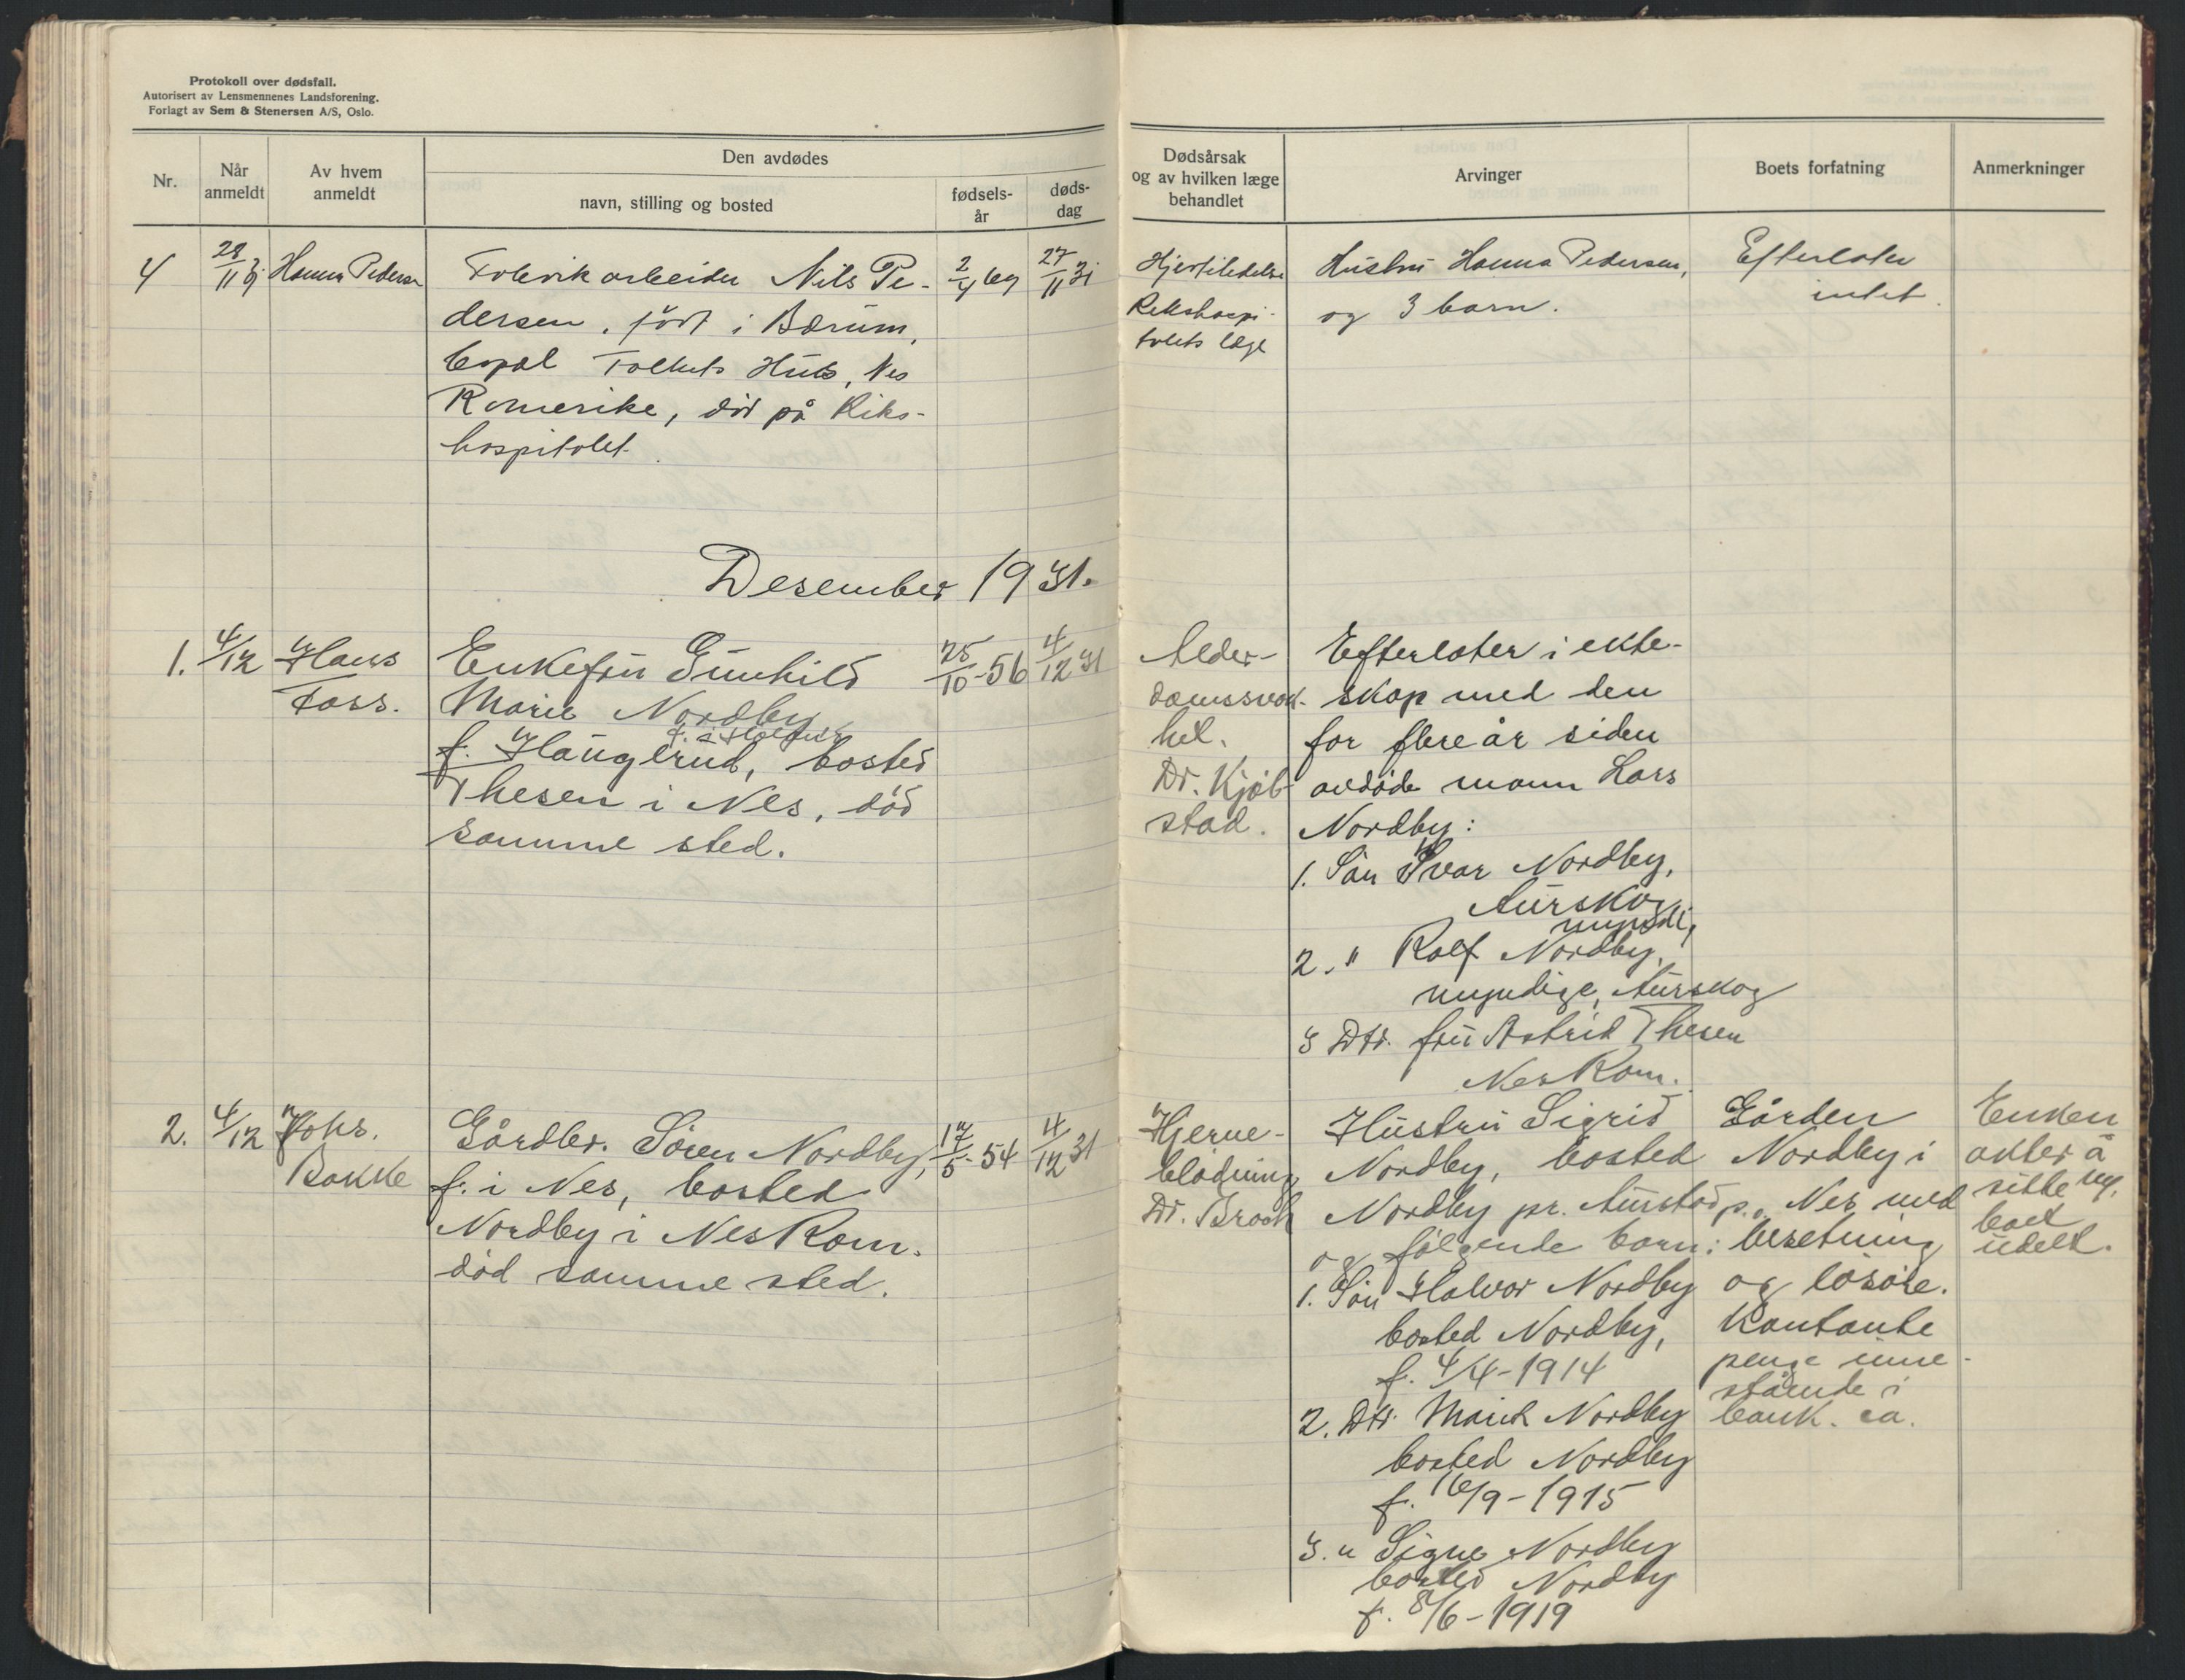 Protokoll over dødsfall.
Autorisert av Lensmennenes Landsforening.
Forlagt av Sem & Stenersen A/S, Oslo.
Nr.
Når anmeldt
Av hvem anmeldt
Den avdødes
navn, stilling og bosted
fødsels-år
døds-dag
Dødsårsak og av hvilken læge behandlet
Arvinger
Boets forfatning
Anmerkninger
4
28/11 31
Hanna Pedersen
Fabrikarbeider Nils Pe-
dersen, født i Bærum,
bopæl Folkets Hus, Nes
Romerike, død på Riks-
hospitalet.
2/4 69
27/11 31
Hjertelidelse
Rikshospi-
talets læge
Hustru Hanna Pedersen,
og 3 barn.
Efterlater
intet.
Desember 1931.
1.
4/12
Hans
Foss.
Enkefru Gunhild
Marie Nordby
f. Haugerud, bosted
Thesen i Nes, død
samme sted.
25/10-56
4/12 31
Alder-
domssvak-
het.
Dr. Kjøl-
stad.
Efterlater i ekte-
skap med den
for flere år siden
avdøde mann Lars
Nordby:
1. Søn Ivar Nordby,
Aurskog,
myndig
2. " Rolf Nordby,
myndige, Aurskog
3 Dtr. fru Astrid Thesen
Nes Rom.
2.
4/12
Johs.
Bakke
Gårdbr. Søren Nordby,
f. i Nes, bosted
Nordby i Nes Rom.
død samme sted.
17/5-54
4/12 31
Hjerne-
blødning
Dr. Broch
Hustru Sigrid
Nordby, bosted
Nordby pr. Aurstad p.o.
og følgende barn:
1. Søn Halvor Nordby
bosted Nordby,
f. 4/4-1914
2. Dtr. Marit Nordby
bosted Nordby
f. 16/9-1915
3. " Signe Nordby
bosted Nordby
f. 8/6-1919
Gården
Nordby i
Nes med
besetning
og løsøre.
Kontante
penge inne-
stående i
bank. ca.
Enken
akter å
sitte
boet
udelt.